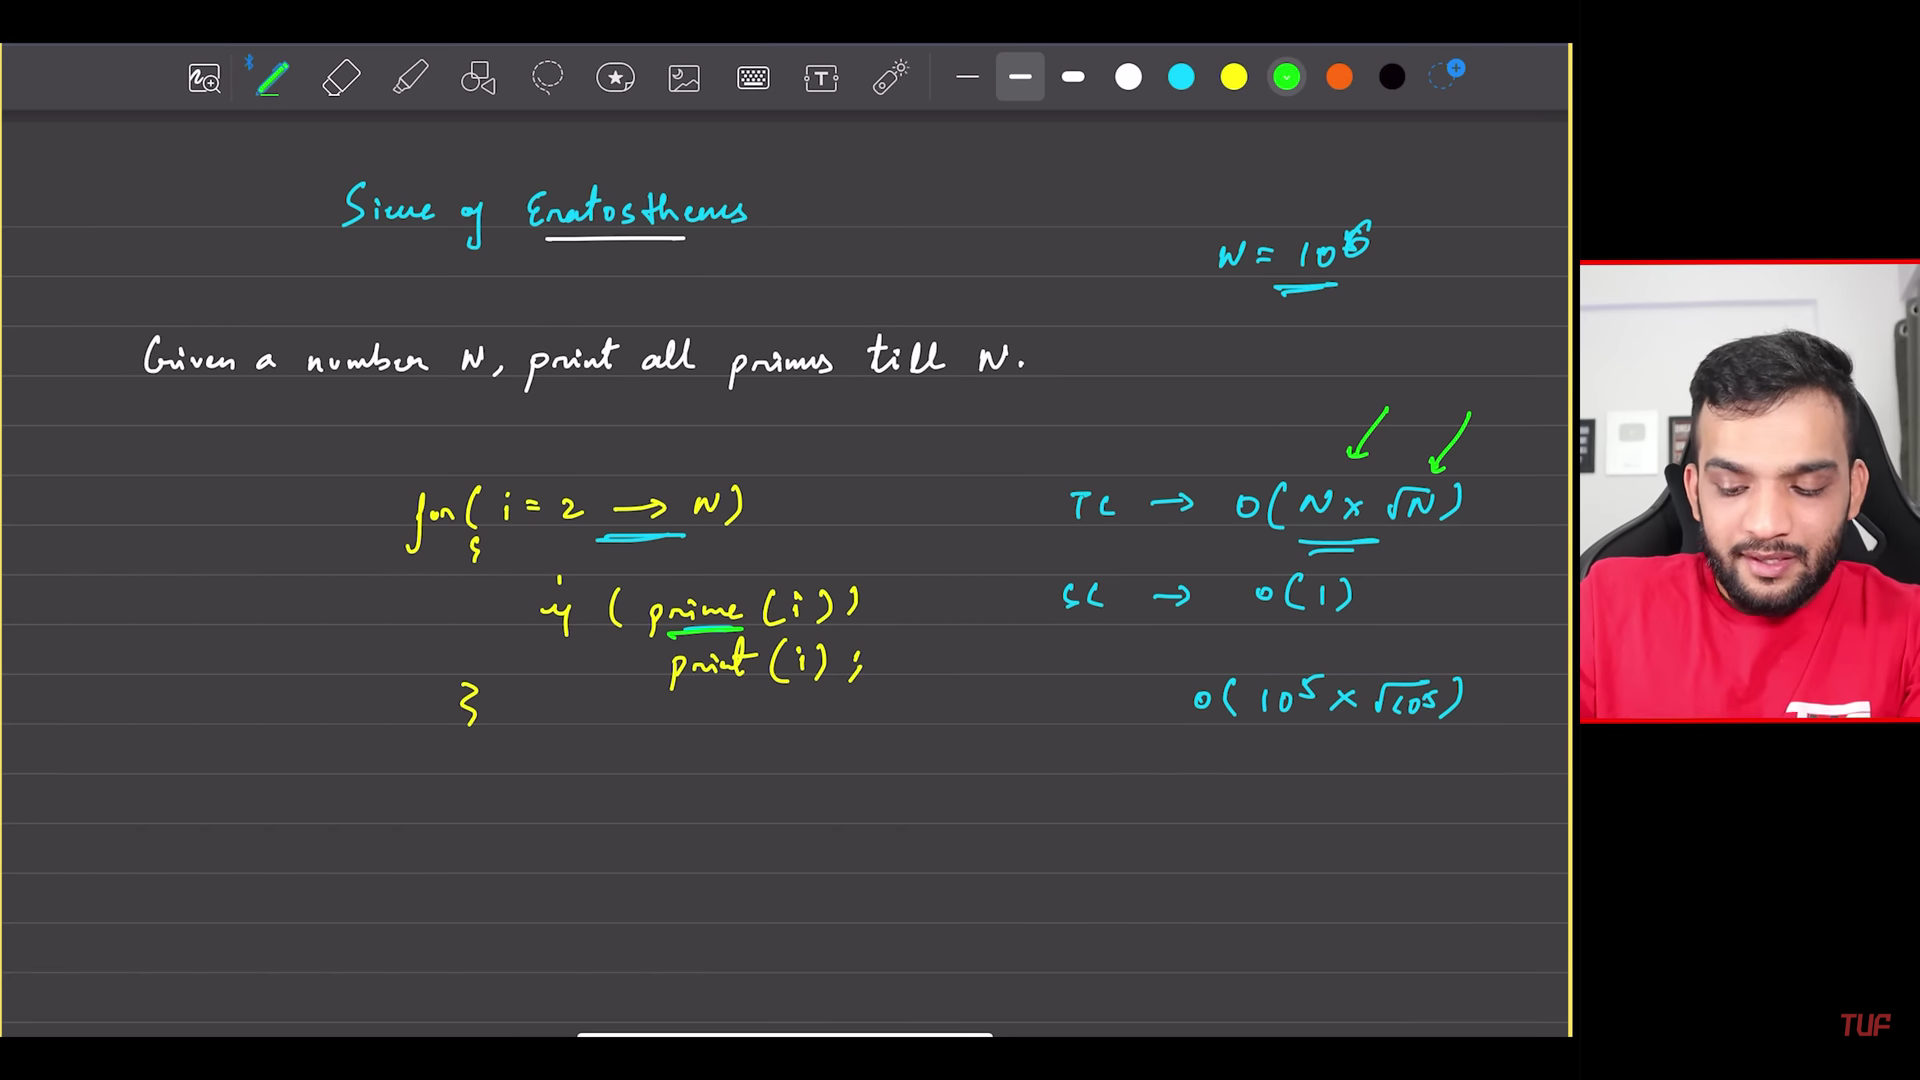 Sieve of Eratosthenes
N = 10^6
Given a number N, print all primes till N.
for( i = 2 → N)
{
if ( prime (i))
print (i) ;
}
TC → O( N x √N )
SC → O( 1 )
O( 10^5 x √10^5 )
T
TUF